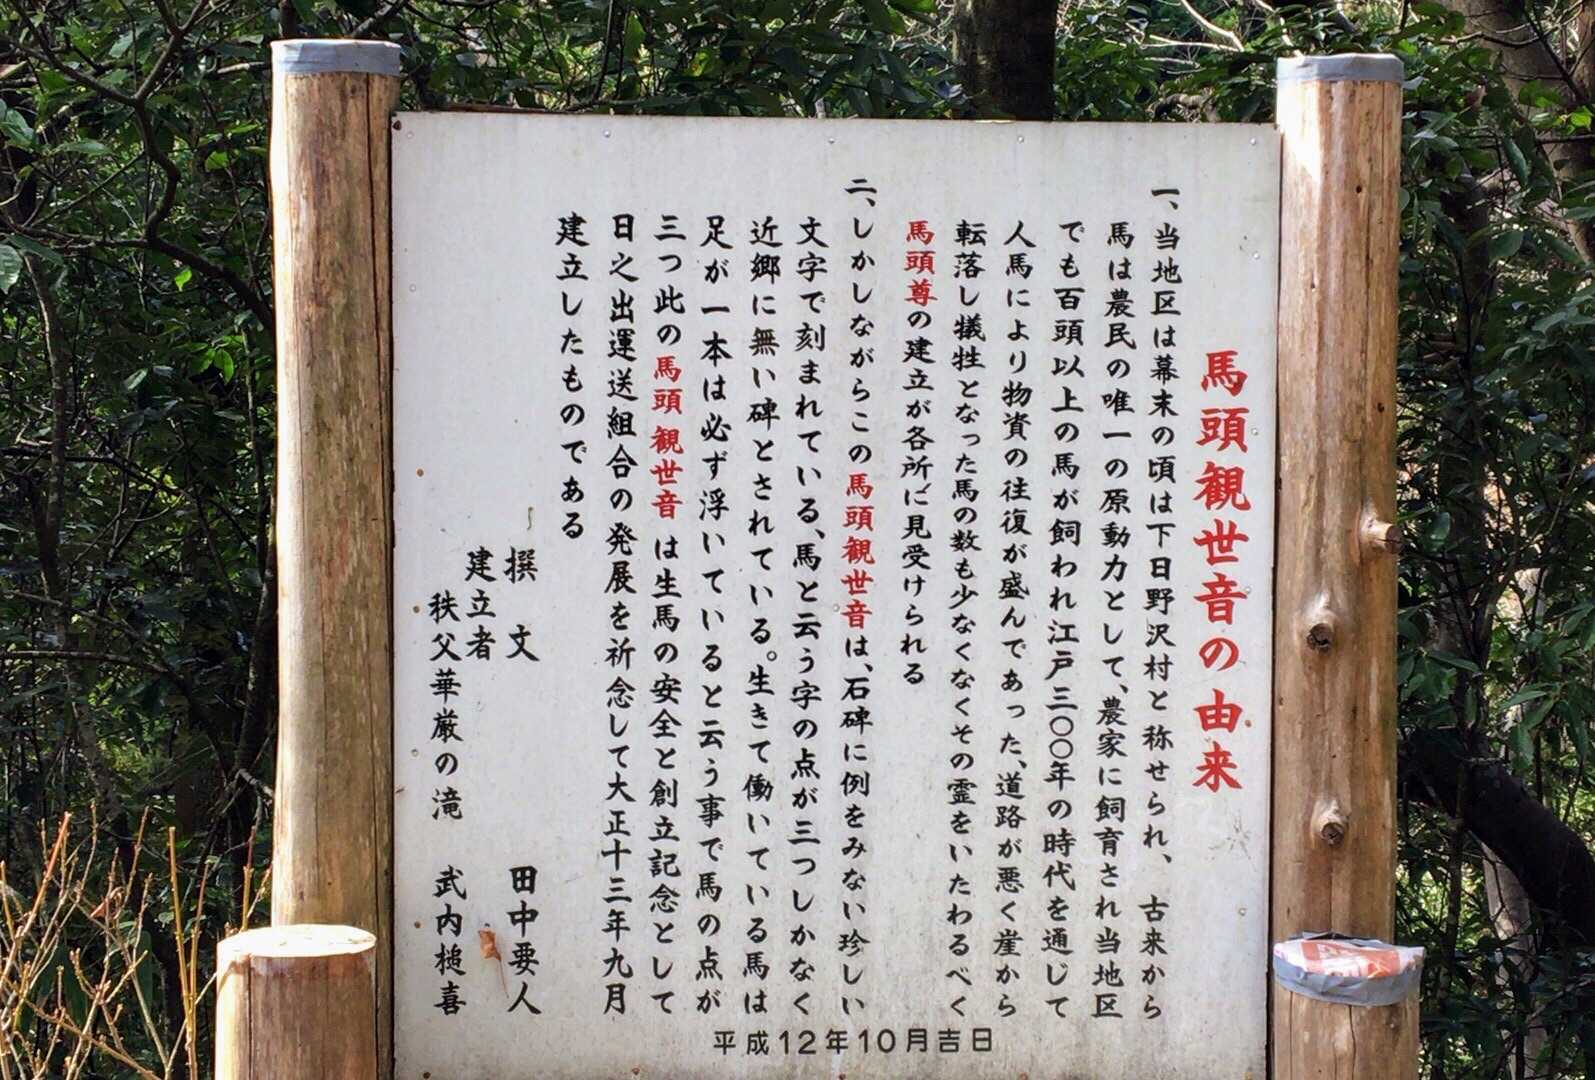 馬頭観世音の由来
一、当地区は幕末の頃は下日野沢村と称せられ、古来から
馬は農民の唯一の原動力として、農家に飼育され当地区
でも百頭以上の馬が飼われ江戸三〇〇年の時代を通じて
人馬により物資の往復が盛んであった、道路が悪く崖から
転落し犠牲となった馬の数も少なくなくその霊をいたわるべく
馬頭尊の建立が各所に見受けられる
二、しかしながらこの馬頭観世音は、石碑に例をみない珍しい
文字で刻まれている、馬と云う字の点が三つしかなく
近郷に無い碑とされている。生きて働いている馬は
足が一本は必ず浮いていると云う事で馬の点が
三つ此の馬頭観世音は生馬の安全と創立記念として
日之出運送組合の発展を祈念して大正十三年九月
建立したものである
撰文 田中要人
建立者
秩父華厳の滝 武内槌喜
平成12年10月吉日